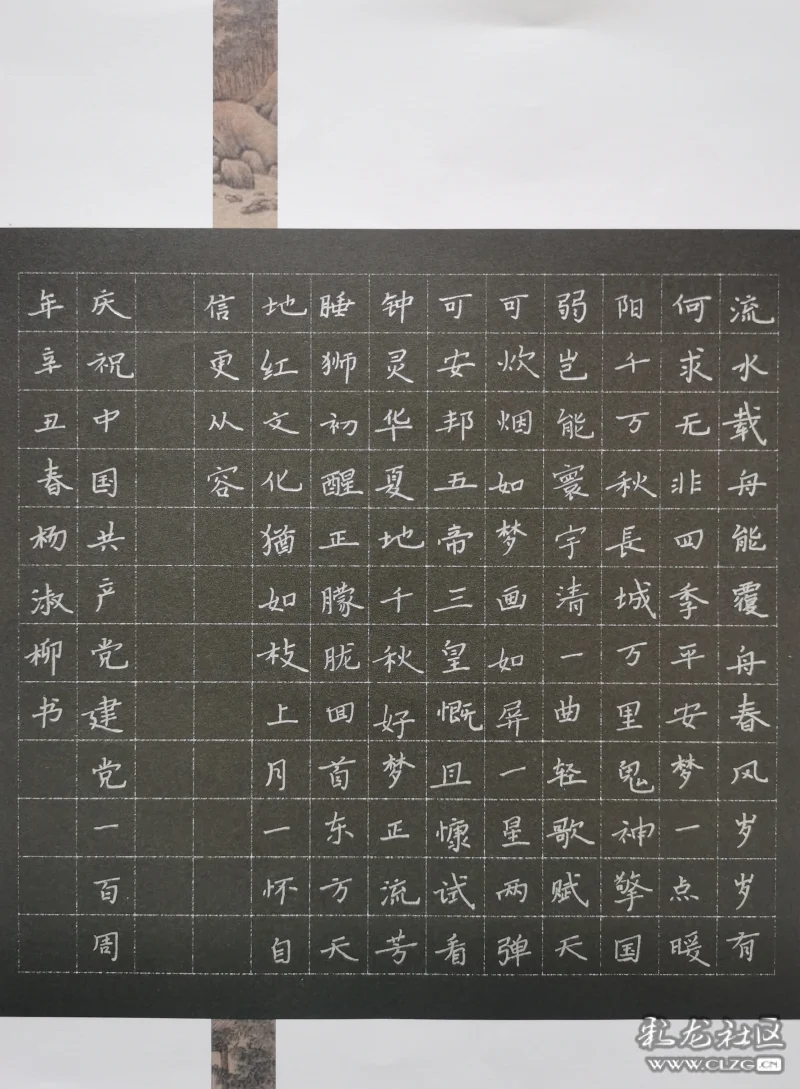 流水载舟能覆舟春风岁岁有
何求无非四季平安梦一点暖
阳千万秋長城万里鬼神擎国
弱岂能寰宇清一曲轻歌赋天
可炊烟如梦画如屏一星两弹
可安邦五帝三皇慨且慷试看
钟灵华夏地千秋好梦正流芳
睡狮初醒正朦胧回首东方天
地红文化猶如枝上月一怀自
信更从容
庆祝中国共产党建党一百周
年辛丑春杨淑柳书
札龙社区
WWW.CLZG.CN